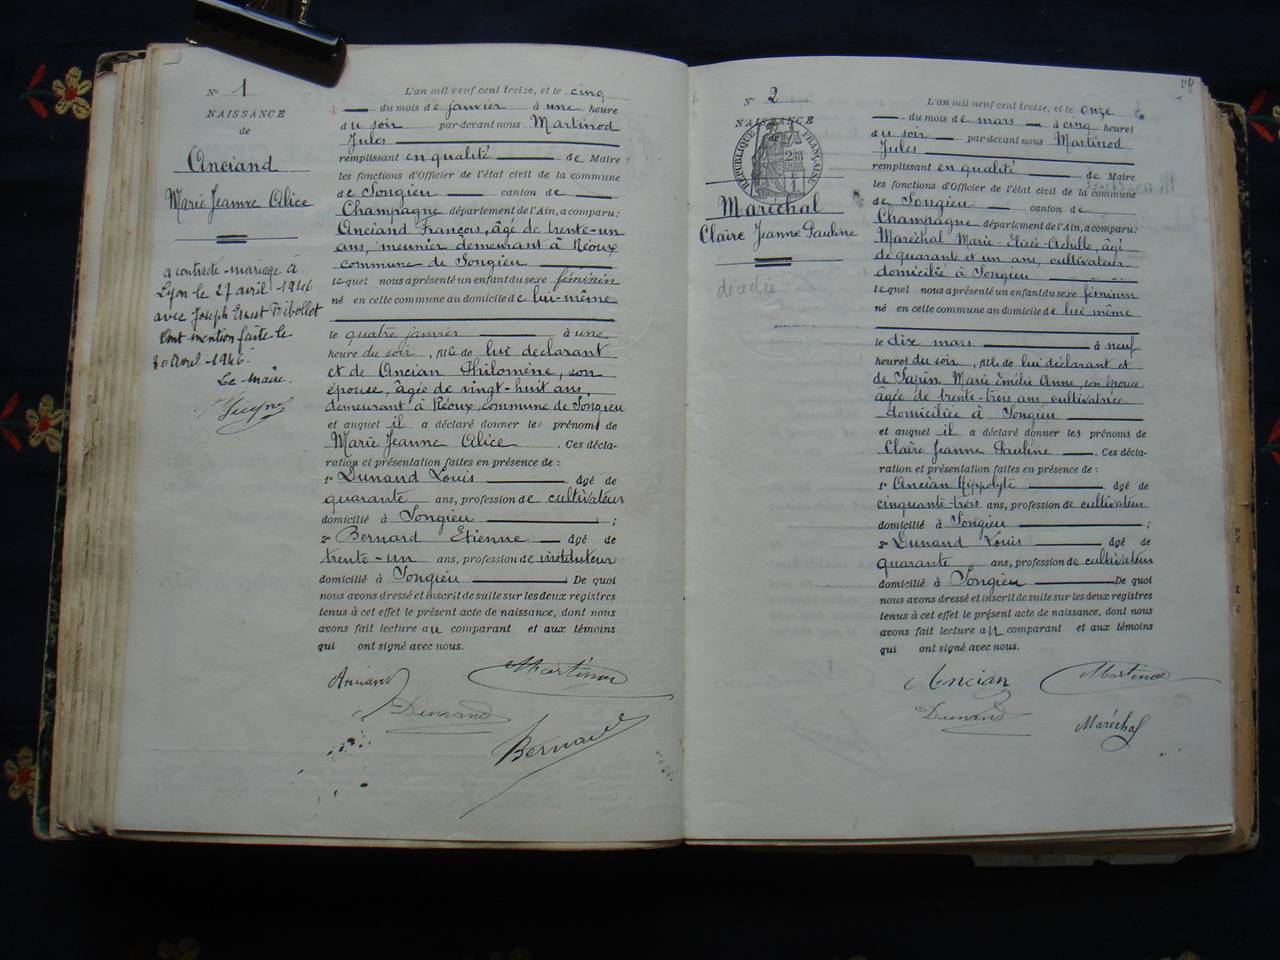 N° 1
NAISSANCE
de
Anciand
Marie Jeanne Alice
a contracté mariage à
Lyon le 27 avril 1946
avec Joseph Ernest Tribollet
Dont mention faite le
30 Avril 1946.
Le Maire.
L'an mil neuf cent treize, et le cinq
du mois de janvier à une heure
du soir par-devant nous Martinod
Jules
remplissant en qualité de Maire
les fonctions d'Officier de l'état civil de la commune
de Songieu canton de
Champagne département de l'Ain, a comparu:
Anciand François, âgé de trente-un
ans, meunier demeurant à Réoux
commune de Songieu
lequel nous a présenté un enfant du sexe féminin
né en cette commune au domicile de lui-même
le quatre janvier à une
heure du soir, fille de lui déclarant
et de Ancian Philomène, son
épouse, âgée de vingt-huit ans,
demeurant à Réoux, commune de Songieu
et auquel il a déclaré donner les prénoms de
Marie Jeanne Alice. Ces décla-
ration et présentation faites en présence de:
1° Dunand Louis âgé de
quarante ans, profession de cultivateur
domicilié à Songieu ;
2° Bernard Etienne âgé de
trente-un ans, profession de instituteur
domicilié à Songieu De quoi
nous avons dressé et inscrit de suite sur les deux registres
tenus à cet effet le présent acte de naissance, dont nous
avons fait lecture au comparant et aux témoins
qui ont signé avec nous.
Anciand Martinod
Dunand
Bernard
28
N° 2
NAISSANCE
RÉPUBLIQUE FRANÇAISE
Maréchal
Claire Jeanne Pauline
décédée
L'an mil neuf cent treize, et le onze
du mois de mars à cinq heures
du soir par-devant nous Martinod
Jules
remplissant en qualité de Maire
les fonctions d'Officier de l'état civil de la commune
de Songieu canton de
Champagne département de l'Ain, a comparu:
Maréchal Marie-Elisée-Achille, âgé
de quarante et un ans, cultivateur
domicilié à Songieu
lequel nous a présenté un enfant du sexe féminin
né en cette commune au domicile de lui même
le dix mars à neuf
heures du soir, fille de lui déclarant et
de Sapin Marie Emilie Anne, son épouse
âgée de trente-trois ans cultivatrice
domiciliée à Songieu
et auquel il a déclaré donner les prénoms de
Claire Jeanne Pauline. Ces décla-
ration et présentation faites en présence de:
1° Ancian Hippolyte âgé de
cinquante-trois ans, profession de cultivateur
domicilié à Songieu ;
2° Dunand Louis âgé de
quarante ans, profession de cultivateur
domicilié à Songieu De quoi
nous avons dressé et inscrit de suite sur les deux registres
tenus à cet effet le présent acte de naissance, dont nous
avons fait lecture au comparant et aux témoins
qui ont signé avec nous.
Ancian Martinod
Dunand Maréchal